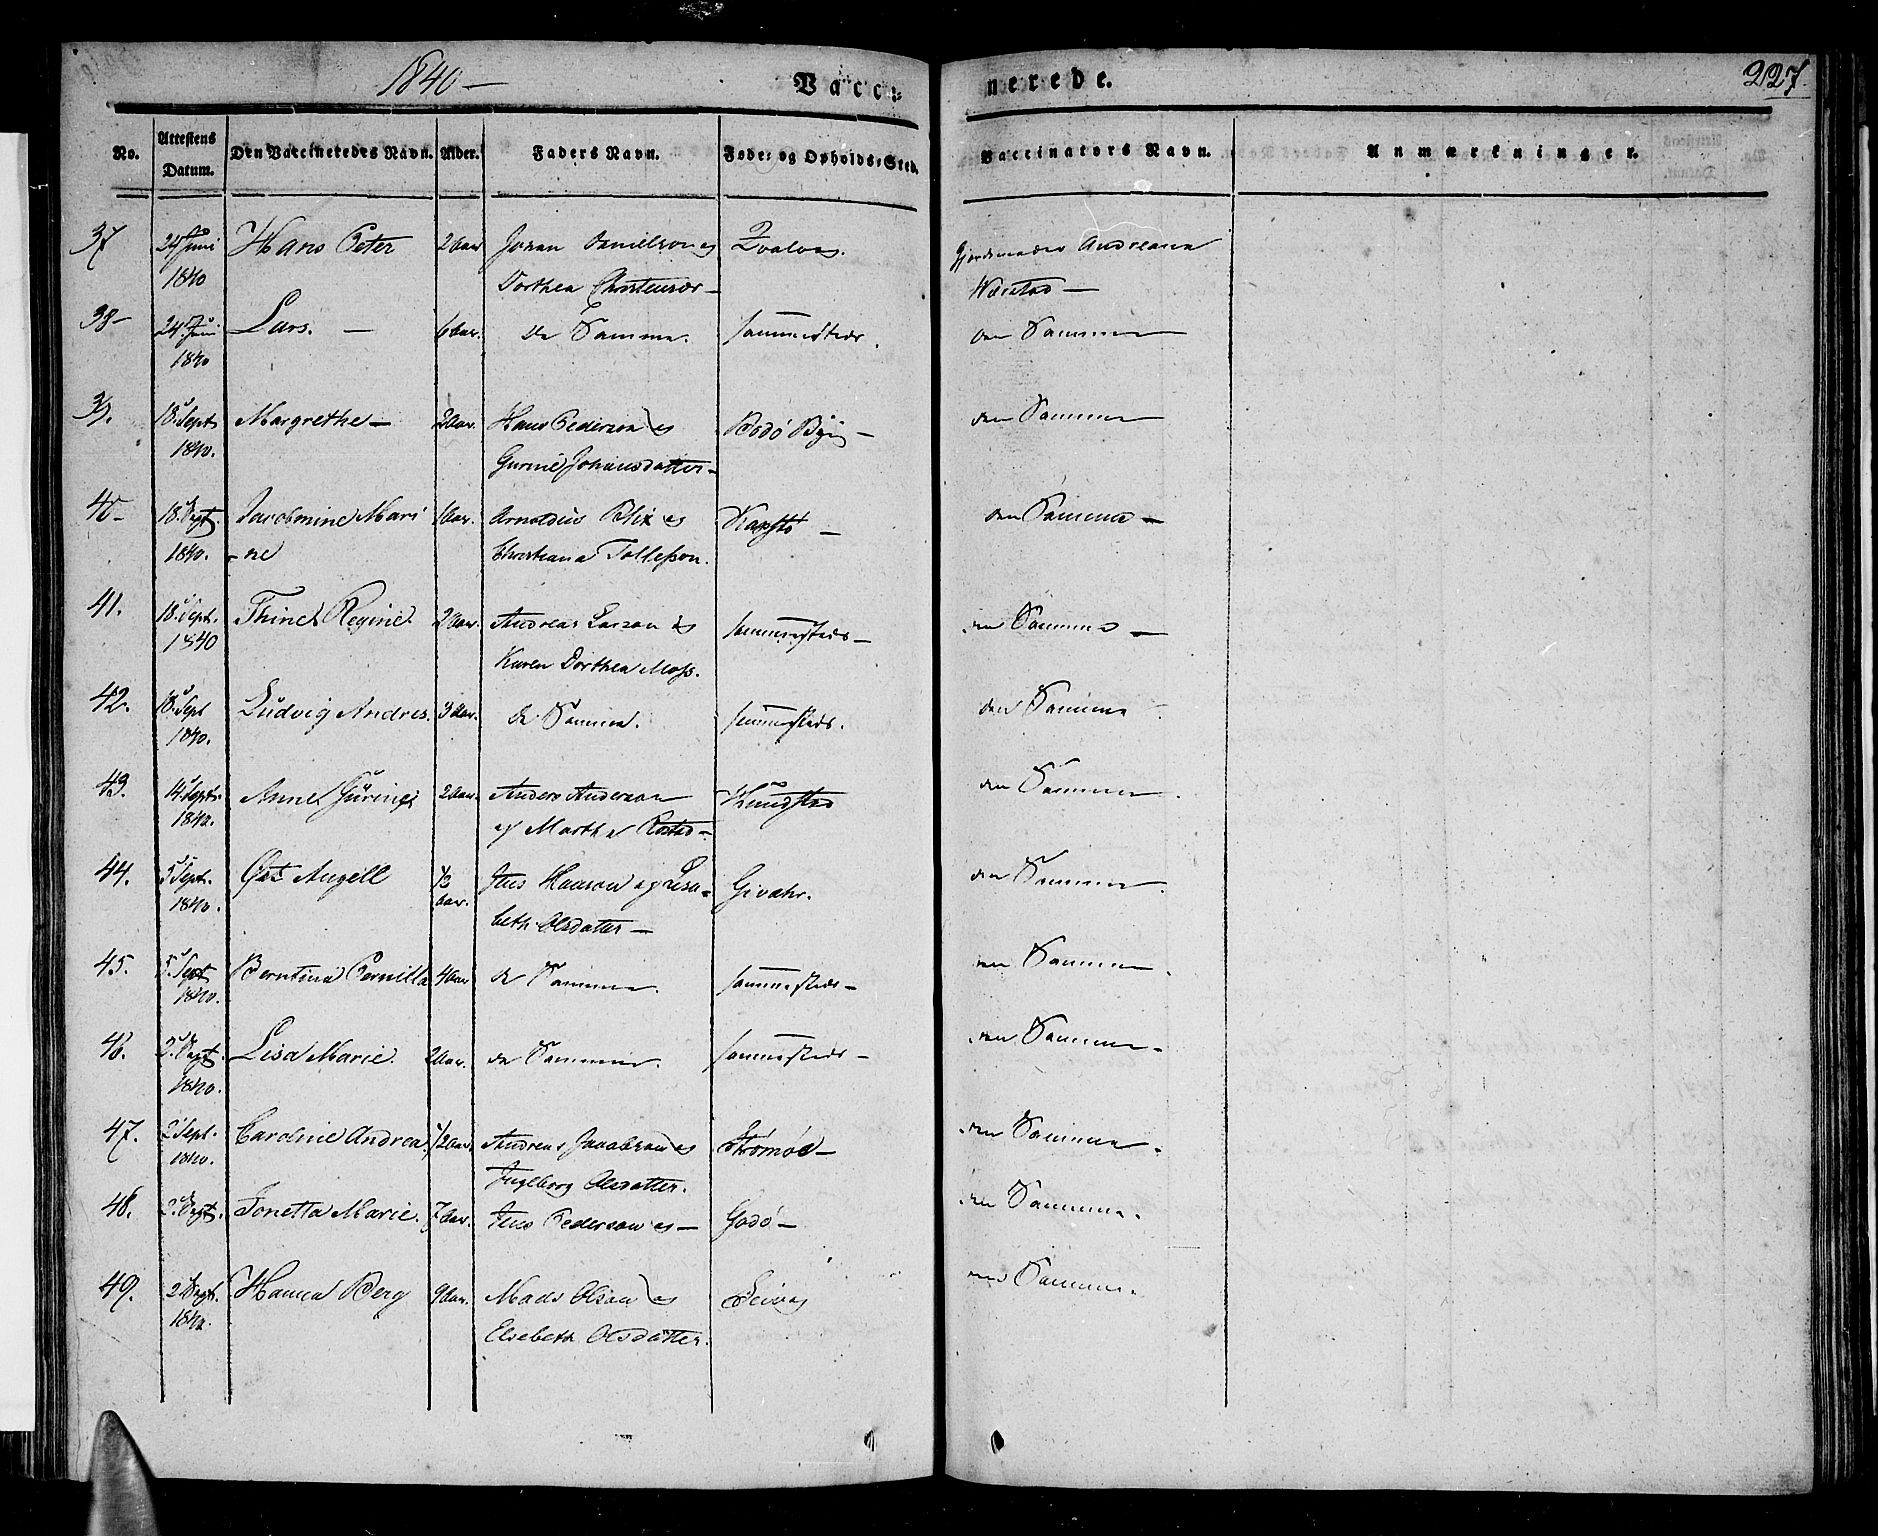 1840 – Vacci nerede. 227.
No. Attestens Datum. Den Vaccineredes Navn. Alder. Faders Navn. Føde- og Opholds-Sted. Vaccinators Navn. Anmærkninger.
37 24 Juni Hans Peter 2 Aar Johan Danielson og Qvalvog. Gjordemoder Andreana
1840 Dorthea Christensdr – Wærstad –
38 – 24 Juni Lars. – 6 Aar. de Samme. sammesteds. den Samme
1840
39. 18. Sept Margrethe – 3 Aar. Hans Pederson og Bodø By – den Samme
1840. Gurine Johansdatter –
40 – 18. Sept. Jacobmine Mari 1 Aar. Arnoldus Blix og Kapstø – den Samme –
1840. -ne Christiana Tollefson.
41. 18. Sept. Thine Regine 2 Aar. Andreas Larson og sammesteds – den Samme –
1840 Karen Dorthea Moss.
42. 18. Sept Ludvig Andreas. 3 Aar. de Samme. sammesteds. den Samme
1840.
43. 14 Sept. Anne 2 Aar. Anders Anderson Kundstad den Samme.
1840. og Martha Røstad –
44. 5 Sept. Angell ½ Jens Hanson og Elisa- Givær. den Samme.
1840. Aar. beth Olsdatter –
45. 5. Sept Berntina Pernilla 4 Aar de Samme. sammesteds – den Samme.
1840.
46. 5. Sept Lisa Marie. 2 Aar. de Samme. sammesteds – den Samme –
1840.
47. 2 Sept. Caroline Andrea. ½ Aar. Andreas Jacobson og Strømøe – den Samme.
1840. Ingeborg Olsdatter.
48. 2 Sept. Jonetta Marie. 7 Aar. Jens Pederson og – Godø – den Samme.
49. 2 Sept. Hanna Berg 9 Aar. Mads Olson og Seivog den Samme.
1840. Elsebeth Olsdatter.